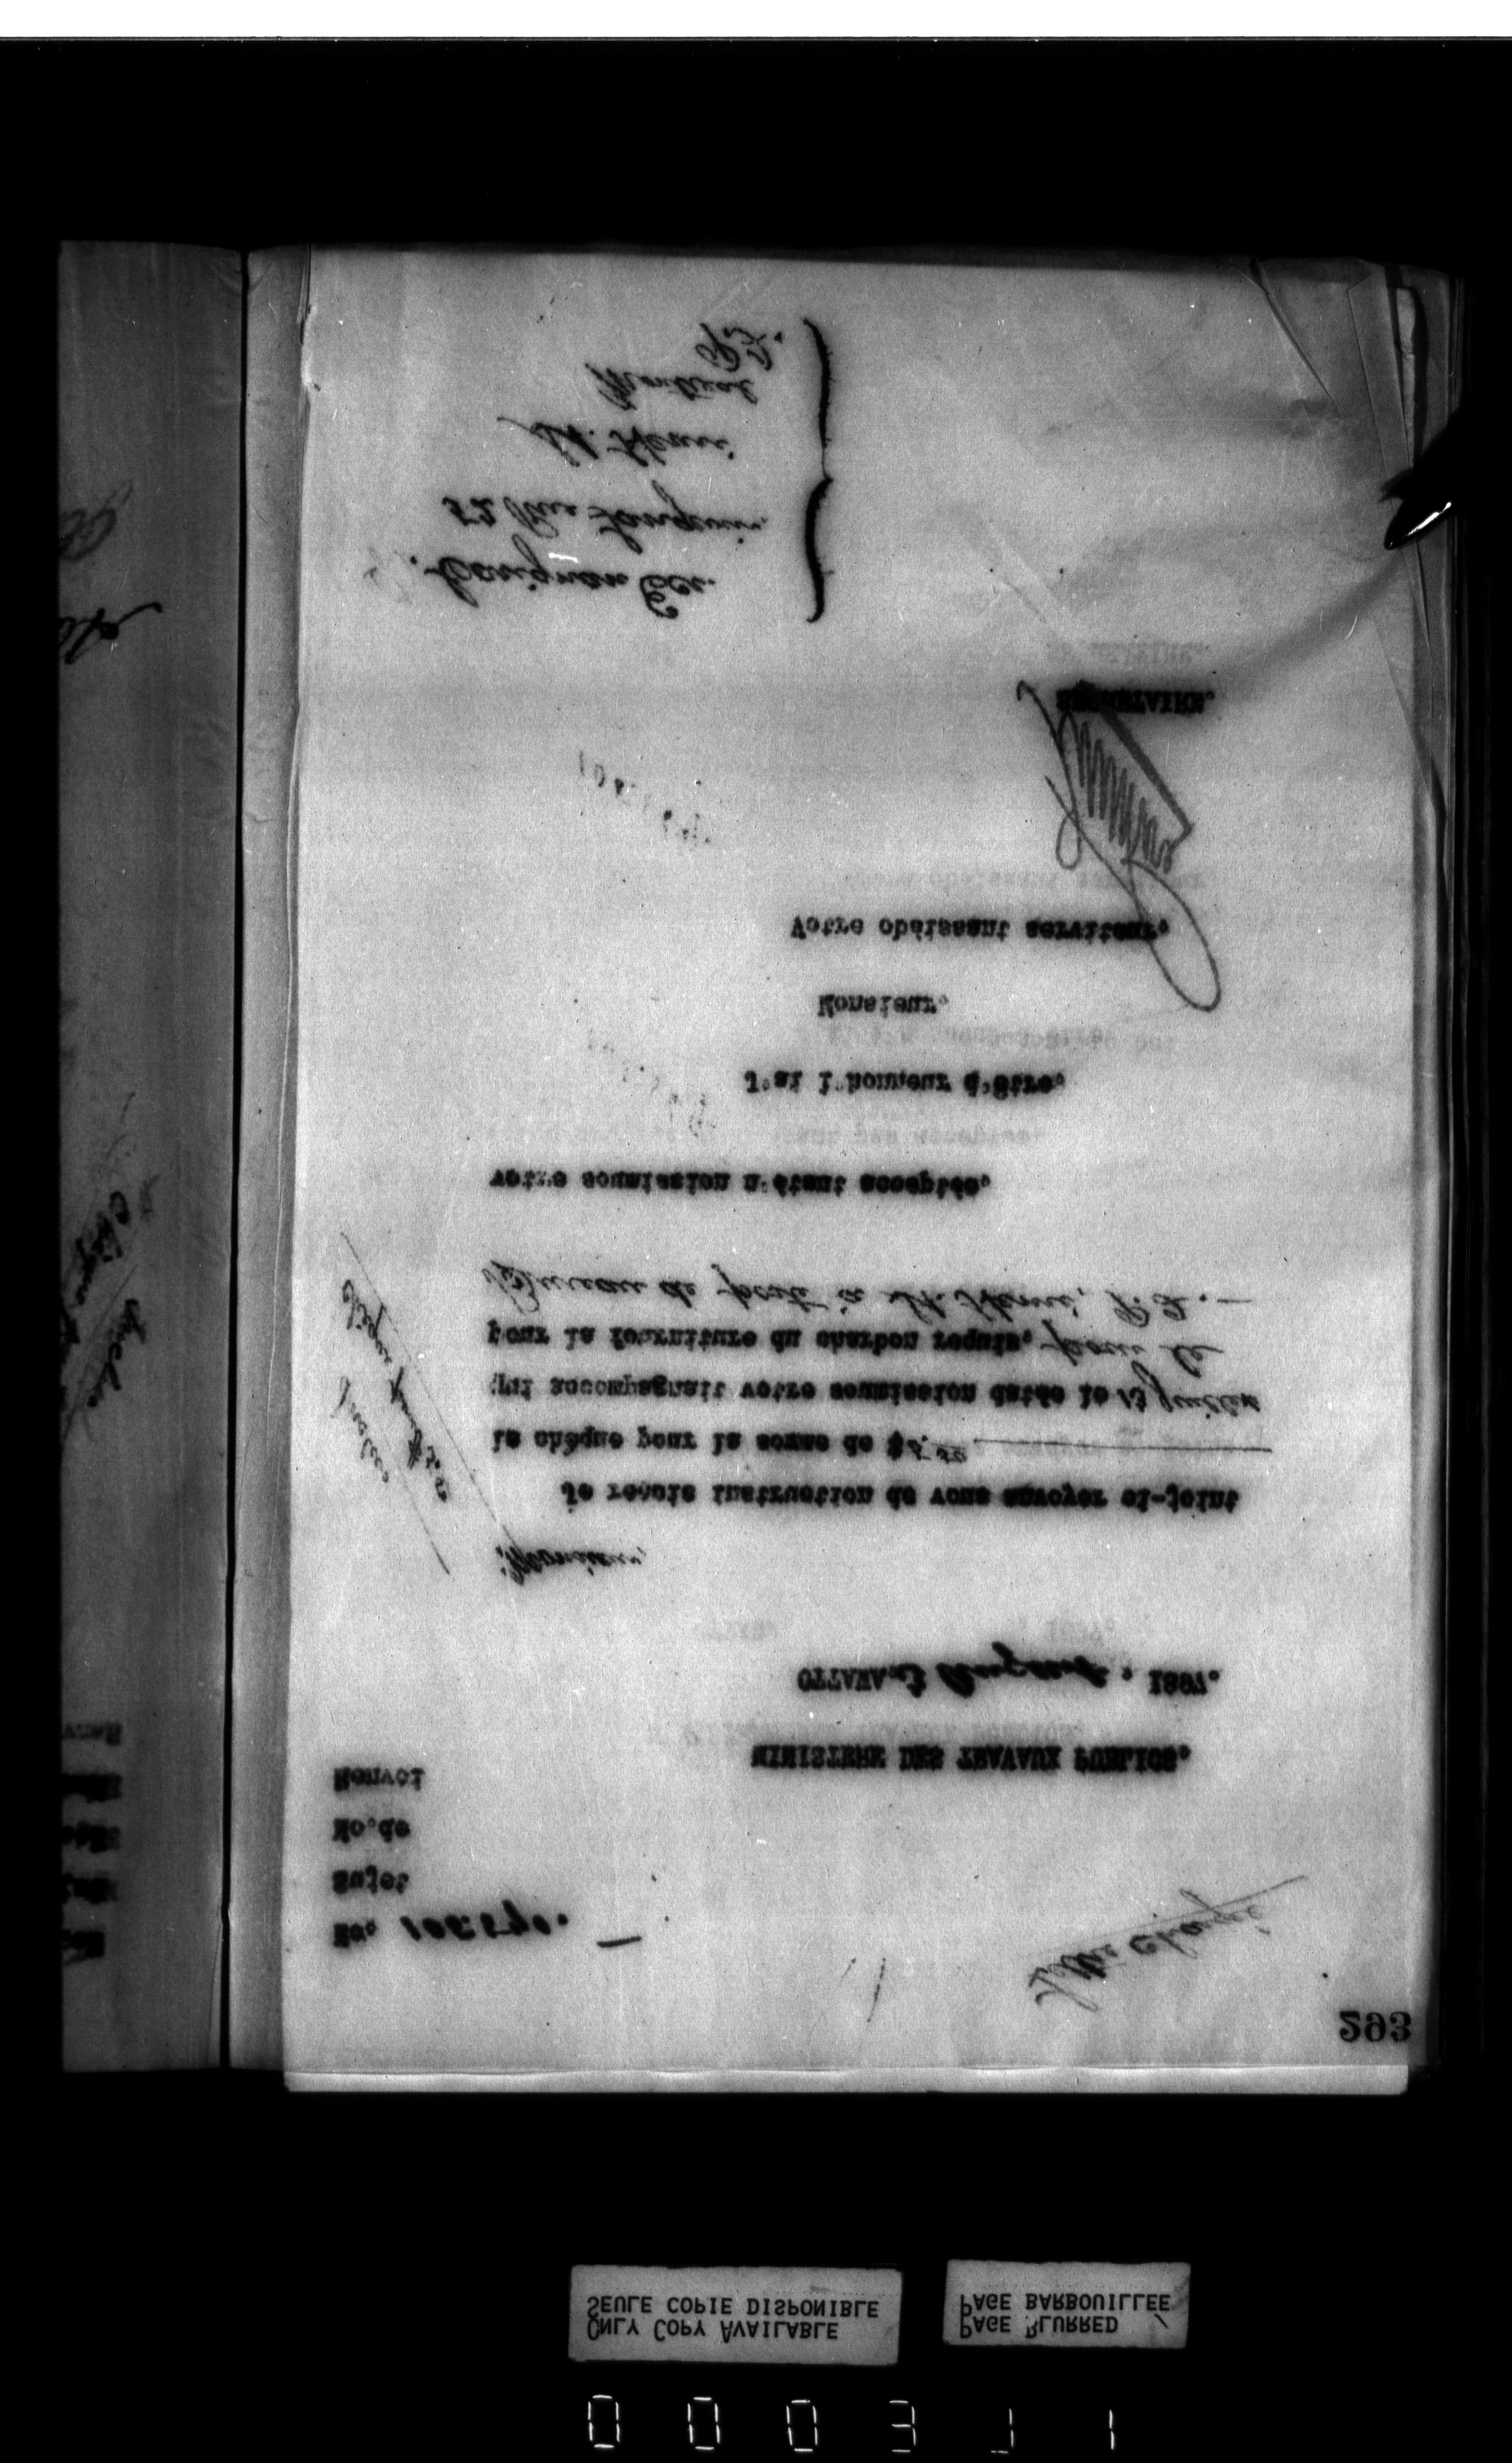 293
Lettre chargée
No. 186570.
Sujet
No. de
Renvoi
MINISTERE DES TRAVAUX PUBLICS.
OTTAWA, 3 August, 1897.
Monsieur,
Je recois instruction de vous envoyer ci-joint
le chèque pour la somme de $5.50
qui accompagnait votre soumission datée le 13 juillet
pour la fourniture du charbon requis, pour le
Bureau de poste à St. Henri, P.Q.
votre soumission n'étant acceptée.
J'ai l'honneur d'être,
Monsieur,
Votre obéissant serviteur,
SECRETAIRE.
Ecr.
52 Rue Langevin,
St. Henri
Montreal
P.Q.
ONLY COPY AVAILABLE
SEULE COPIE DISPONIBLE
PAGE BLURRED
PAGE BARBOUILLEE